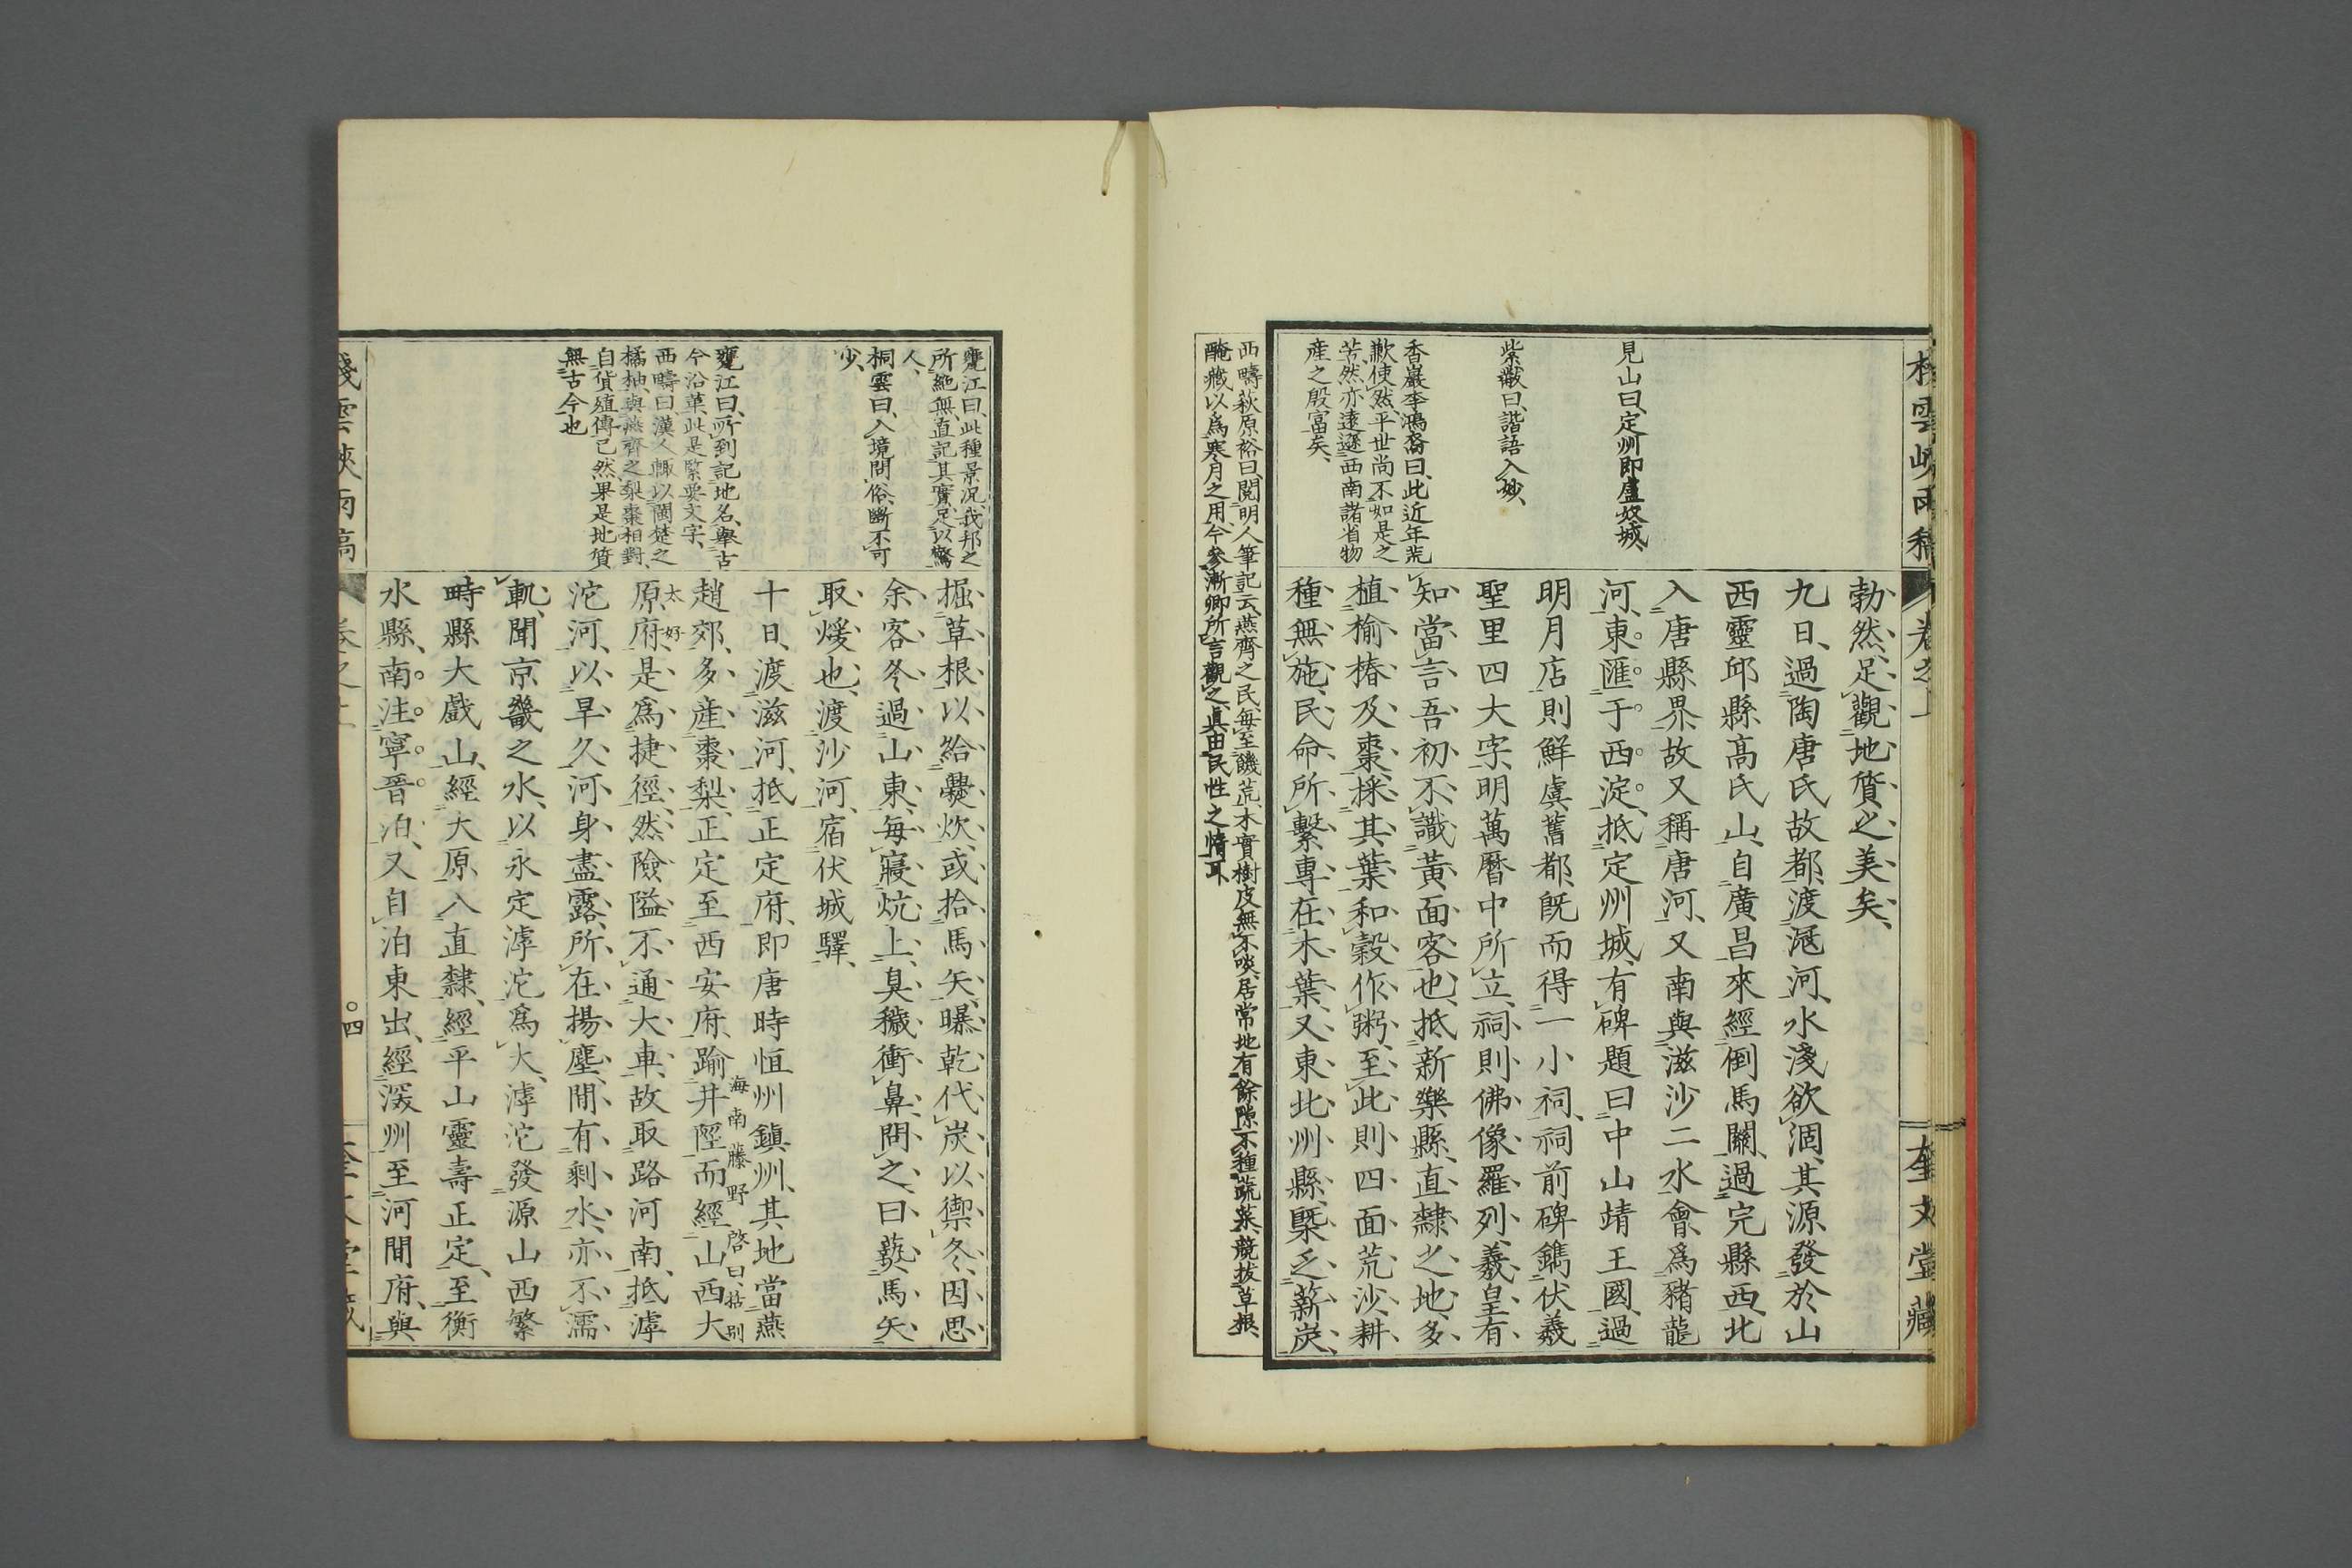 棧雲峽雨稿
卷之上
奎文堂藏
見山曰、定州即盧奴城、
紫瀲曰、諧語入妙、
香巖李鴻裔曰、此近年荒
歉使然、平世尚不如是之
苦、然亦遠遜西南諸省物
產之殷富矣、
勃然、足觀地質之美矣、
九日、過陶唐氏故都、渡滱河、水淺欲涸、其源發於山
西靈邱縣高氏山、自廣昌來經倒馬關、過完縣西北
入唐縣界、故又稱唐河、又南與滋沙二水會、爲豬龍
河、東匯于西淀、抵定州城、有碑題曰中山靖王國、過
明月店、則鮮虞舊都、既而得一小祠、祠前碑鐫伏羲
聖里四大字、明萬曆中所立、祠則佛像羅列、羲皇有
知、當言吾初不識黃面客也、抵新樂縣、直隸之地、多
植榆椿及棗、採其葉和穀作粥、至此則四面荒沙、耕
種無施、民命所繫專在木葉、又東北州縣、槩乏薪炭、
西疇萩原裕曰、閱明人筆記云、燕齊之民、每至饑荒、木實樹皮無不啖、居常地有餘隙、不種蔬菜、競拔草根、
醃藏以爲寒月之用、今參漸卿所言觀之、眞由民性之惰耳、
甕江曰、此種景況、我邦之
所絕無、直記其實、足以驚
人、
桐雲曰、入境問俗、斷不可
少、
甕江曰、所到記地名、舉古
今沿革、此是緊要文字、
西疇曰、漢人輒以閩楚之
橘柚、與燕齊之梨棗相對、
自貨殖傳已然、果是地質
無古今也
掘草根以給爨炊、或拾馬矢、曝乾代炭以禦冬、因思
余客冬過山東、每寢炕上、臭穢衝鼻、問之、曰、爇馬矢
取煖也、渡沙河、宿伏城驛、
十日、渡滋河、抵正定府、即唐時恒州鎮州、其地當燕
海南藤野啓曰、拈別
趙郊、多產棗梨、正定至西安府、踰井陘而經山西大
太好
原府、是爲捷徑、然險隘不通大車、故取路河南、抵滹
沱河、以旱久河身盡露、所在揚塵、間有剩水、亦不濡
軌、聞京畿之水、以永定滹沱爲大、滹沱發源山西繁
畤縣大戲山、經大原入直隸、經平山靈壽正定、至衡
水縣、南注寧晉泊、又自泊東出、經深州至河間府、與
棧雲峽雨稿
卷之上
四
奎文堂藏